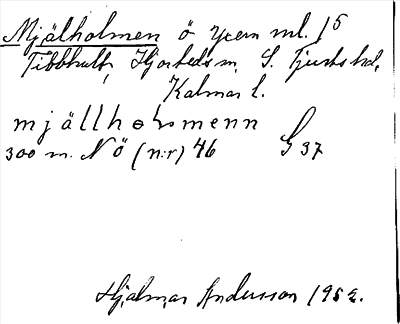 Mjälholmen ö Yxern ml. 15
Tibbhult, Hjorteds n. S. Tjusts hd,
Kalmar l.
mjällholsmenn
300 m. N ö (n:r) 46 G 37
Hjalmar Andersson 1952.